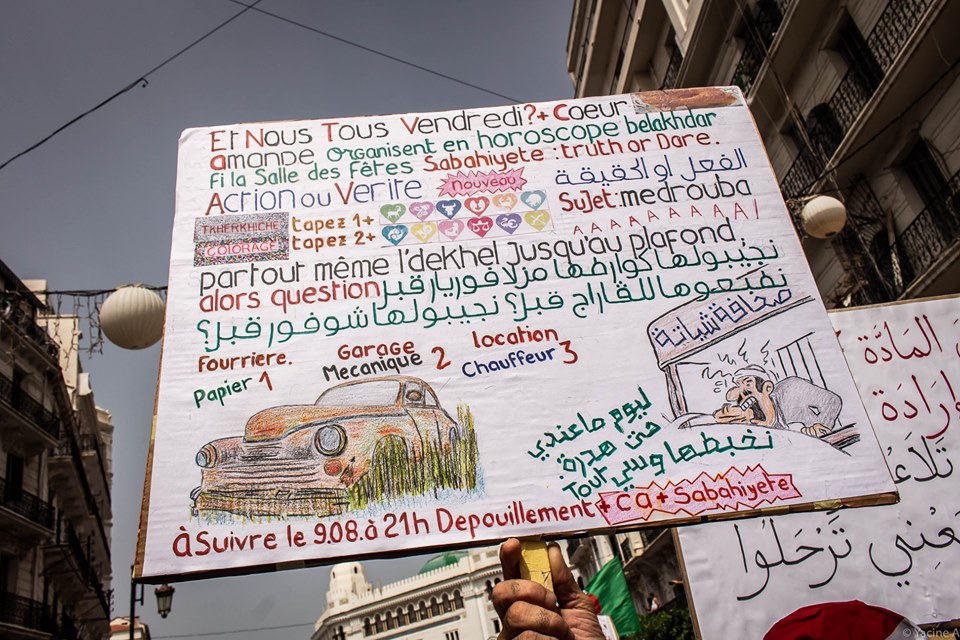 Et Nous Tous Vendredi?+ Coeur
amande organisent en horoscope belakhdar
Fi la Salle des Fêtes Sabahiyete : truth or Dare.
Action ou Verite Nouveau الفعل أو الحقيقة
TKHERKHICHE tapez 1+ Sujet: medrouba
COLORAGE tapez 2+ AAAAAAAAA!
partout même l'dekhel jusqu'au plafond,
alors question نجيبولها كوارطها مزلا فوريار قبل
نفيعوها للقاراج قبل؟ نجيبولها شوفور قبل؟
Fourriere. Garage location
Papier 1 Mecanique 2 Chauffeur 3
صحافة شياتة
ليوم ماعندي
حتى هدرة
نخبطها وسي
Tout
à Suivre le 9.08.à 21h Depouillement + ca + Sabahiyete
المادة
تلاء
ترحلوا
© Yacine A